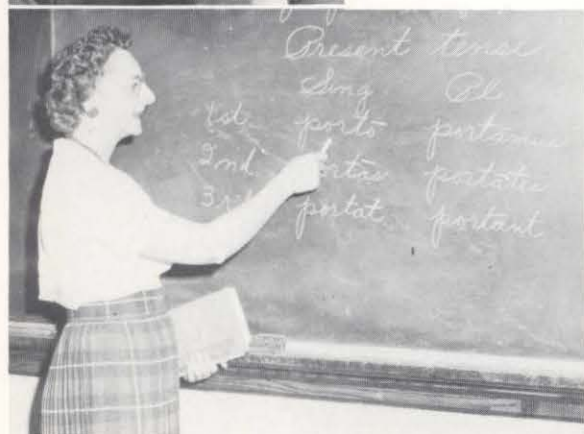 Present tense
Sing Pl
1st portō portāmus
2nd portās portātis
3rd portat portant